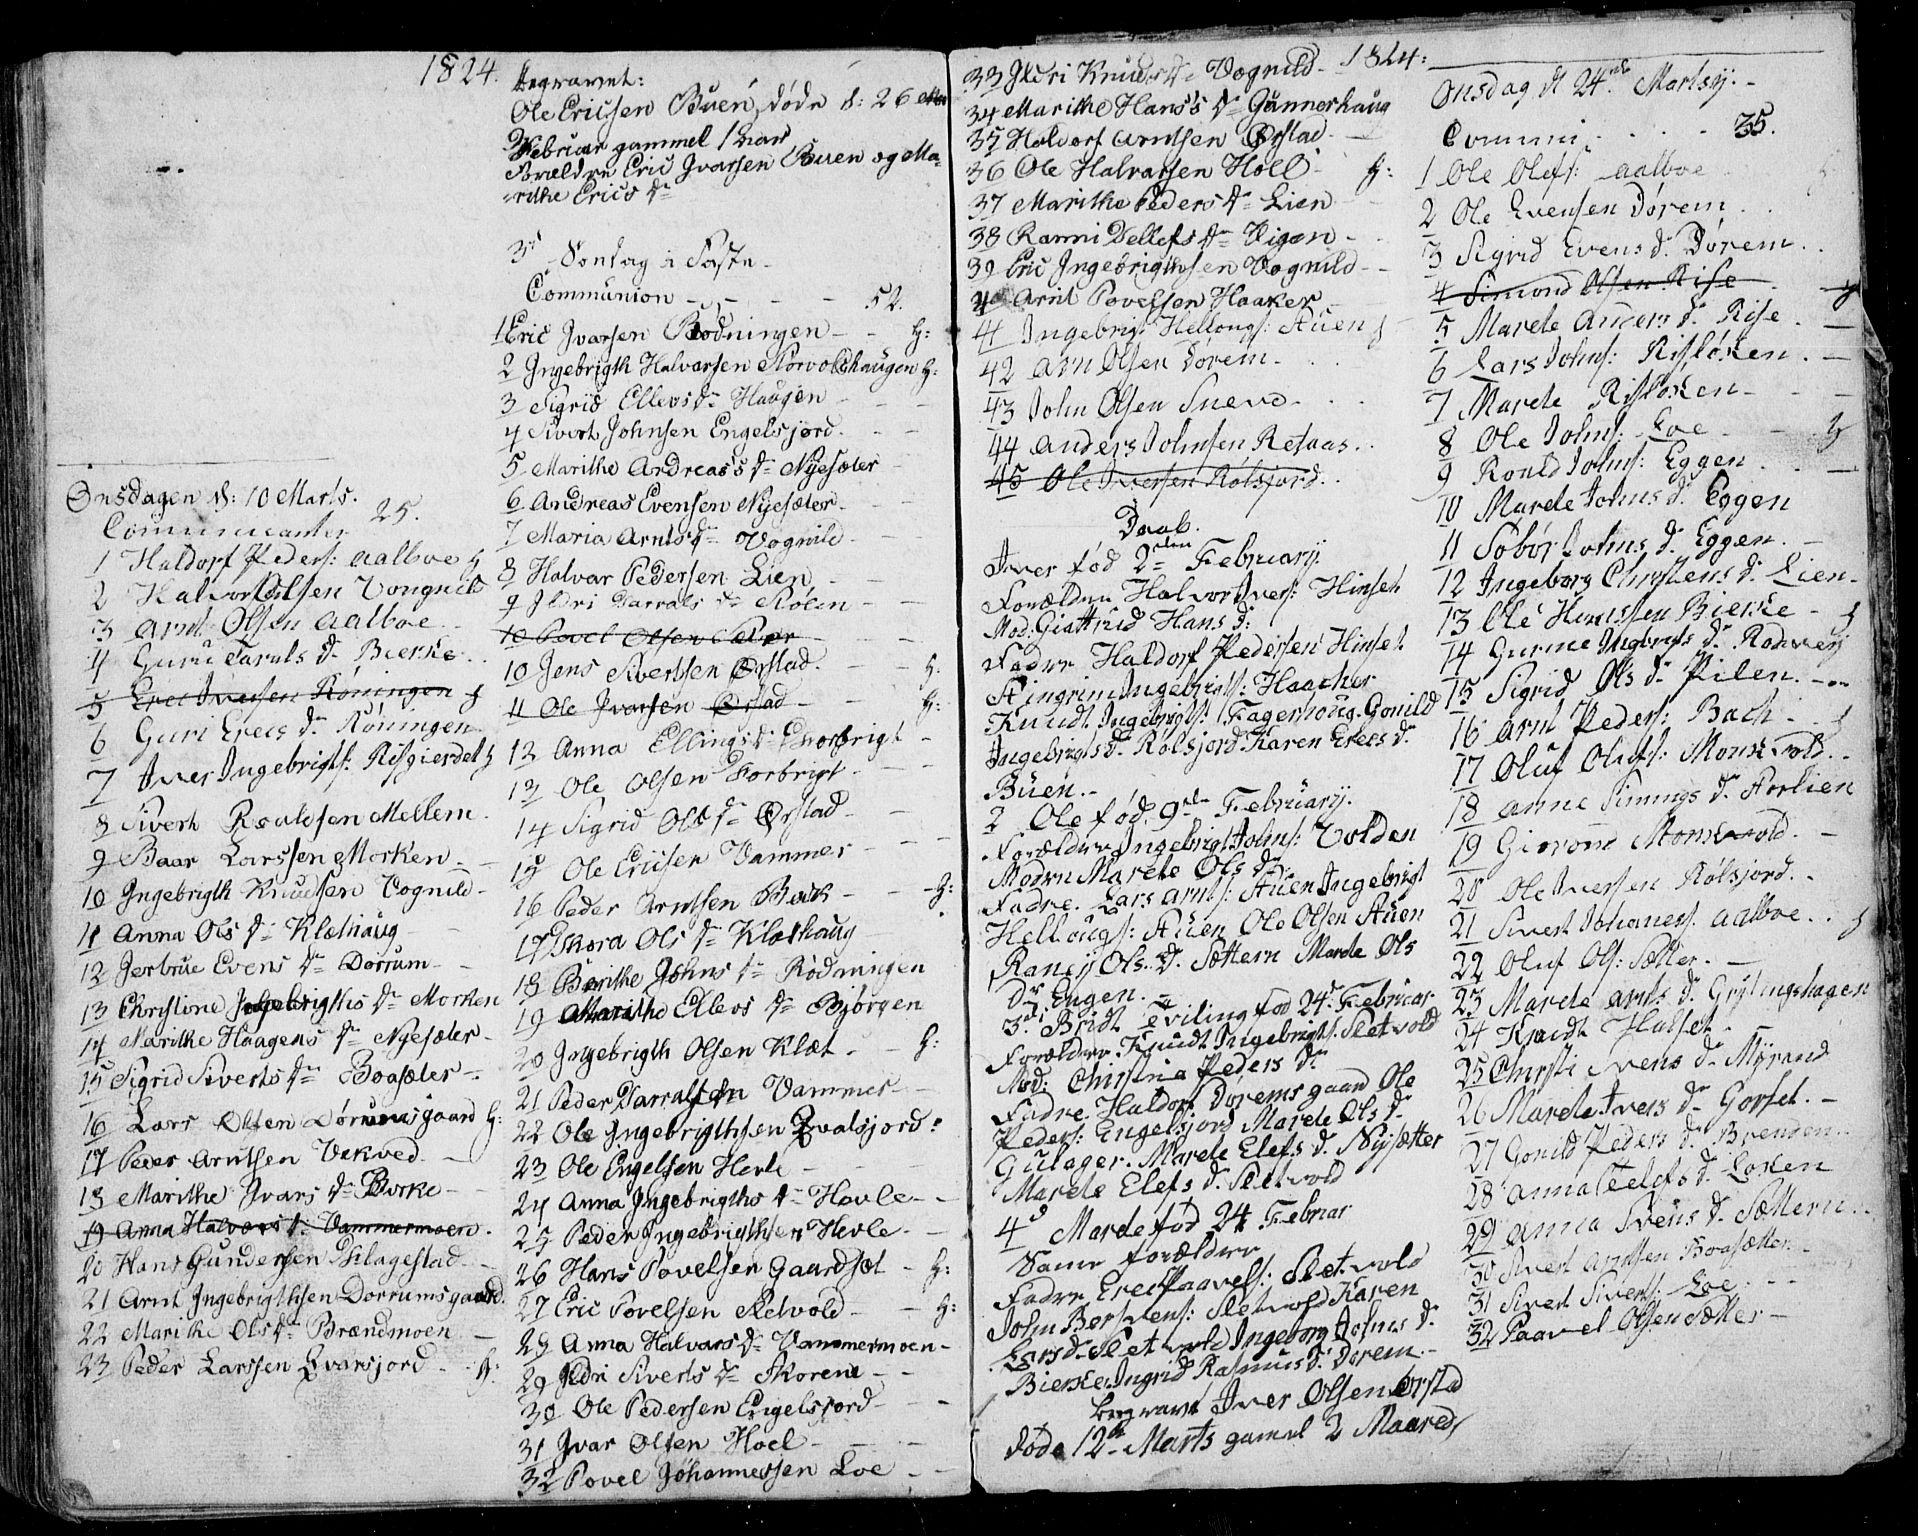 1824.
Onsdagen d: 10 Marts.
Communicanter 25.
1 Haldorf Peders: Aalboe
2 Halvor Olsen Vongnild
3 Arnt Olsen Aalboe
4 Guru Taruls Dr Bierke
5 Erec Iversen Röningen
6 Guri Erecs Dr Röningen
7 Iver Ingebrigts: Risgierdet
8 Sivert Roaldsen Mellem
9 Baar Larssen Morken
10 Ingebrigth Knudsen Vognild
11 Anna Ols Dr Klæthaug
12 Jertrue Evens Dr Dorrum
13 Christine Ingebrigths Dr Morken
14 Marithe Haagens Dr Nyesæter
15 Sigrid Siverts Dr Boasæter
16 Lars Olsen Dørumsgaard H:
17 Peder Arntsen Vekved
18 Marithe Ivars Dr Birke
19 Anna Halvors Dr Vammermoen
20 Hans Gundersen Slagestad
21 Arnt Ingebrigthsen Dorrumsgaard
22 Marithe Ols Dr Brændmoen
23 Peder Larssen Qvarsjord H:
Begravet:
Ole Ericsen Buen, døde d: 26
Februar gammel 1 aar
Forældre Eric Ivarsen Buen og Ma-
rithe Erics Dr
3d Søndag i Faste
Communion 52.
1 Eric Ivarsen Rødningen H:
2 Ingebrigth Halvarsen Storvoldhaugen H:
3 Sigrid Ellevs Dr Haugen
4 Sivert Johnsen Engelsjord
5 Marithe Andreas's Dr Nyesæter
6 Andreas Evensen Nyesæter
7 Maria Arnts Dr Vognild
8 Halvar Pedersen Lien
9 Ildri Harrals Dr Stølen
10 Povel Olsen
10 Jens Sivertsen Ørstad H:
11 Ole Ivarsen Ørstad H:
12 Anna Ellings Dr
13 Ole Olsen Forbrigt
14 Sigrid Ols Dr Ørstad
15 Ole Ericsen Vammer
16 Peder Arntsen Bak H:
17 Skora Ols Dr Klæthaug
18 Berithe Johns Dr Rødningen
19 Marithe Ellevs Dr Bjørgen
20 Ingebrigth Olsen Klæt H:
21 Peder Harraldsen Vammer
22 Ole Ingebrigthsen Qvalsjord
23 Ole Engelsen Hevle
24 Anna Ingebrigths Dr Hevle
25 Peder Ingebrigthsen Hevle
26 Hans Povelsen Gaardsæt H:
27 Eric Povelsen Sletvold H:
28 Anna Halvars Dr Vammermoen
29 Ildri Siverts Dr Skorem
30 Ole Pedersen Engelsjord
31 Ivar Olsen Hoel
32 Povel Johannessen Loe
1824:
33 Ildri Knuds Dr Vognild
34 Marithe Hans's Dr Gunnerhaug
35 Haldorf Arntsen Ørstad
36 Ole Halvarsen Holl H:
37 Marithe Peders Dr Lien
38 Ranni Dellefs Dr Vigen
39 Eric Ingebrigthsen Vognild
40 Arnt Povelsen Haaker
41 Ingebrigt Hellougs: Auen
42 Arn Olsen Dørem
43 John Olsen Sneve
44 Anders Johnsen Retaas
45 Ole Iversen Rølsjord
Daab.
Iver fød 2den Februarij
Forældre Halvor Ivers: Hinset
Mod: Giøttrud Hans d:
Faddre Haldorf Pedersen Hinset
Aingrim Ingebrigts: Haacher
Knudt Ingebrigts: Fagerhoug. Gonild
Ingebrigts Dr Rølsjord Karen Erecs Dr
Buen.
2 Ole fød 9de Februarij.
Forældre Ingebrigt Johns: Volden
Modern Marete Ols Dr
Fadre. Lars Arnts: Auen Ingebrigt
Hellougs: Auen Ole Olsen Auen
Ranij Ols D. Sættern Marete Ols
Dr Engen.
3. Bridt Tviling fød 24de Februar
Forældre. Knudt Ingebrigts. Sletvold
Mod: Christine Peders Dr
Fadre. Haldorf Døremsgaard Ole
Peders: Engelsjord Marete Ols Dr
Gulager. Marete Elefs d. Nysætter
Marete Elefs d. Sletvold
4 Marete fød 24 Februar
Same forældre
Fadre Erec Paavels: Sletvold
John Bersvens: Sletvold Karen
Lars d. Sletvold Ingeborg Johns Dr
Bierke. Ingrid Rasmus d. Dorem
begravet Iver Olsen Ørstad
døde 12te Marts gamel 2 Maaned
Onsdag d 24de Martsij.
Commun 35.
1 Ole Olefs: Aalboe
2 Ole Evensen Dørem
3 Sigrid Evens D. Dørem
4 Simond Olsen Rise
5 Marete Anders Dr Rise
6 Lars Johns: Risløkken
7 Marete Risløkken
8 Ole Johns: Loe
9 Rould Johns: Eggen
10 Marete Johns D. Eggen
11 Sobør Johns D. Eggen
12 Ingeborg Chrystens D. Lien
13 Ole Hanssen Bierke
14 Gurine Ingebrigts Dr
15 Sigrid Ols Dr Pilen
16 Arnt Peders: Bach
17 Oluf Olufs: Monsvold
18 Anne Simmgs D.
19 Monsvold
20 Ole Iversen Rølsjord
21 Sivert Johaness. Aalboe
22 Oluf Ols: Sætter
23 Marete Arnts D. Grytingshagen
24 Knudt Halset
25 Christi Svens Dr Myrand
26 Marete Ivers Dr Gorset
27 Gonild Peders Dr Brenden
28 Anna Dr Loken
29 Anna Svens Dr Sættern
30 Sivert Arntsen Boasætter
31 Sivert Siverts: Loe
32 Paavel Olsen Sætter